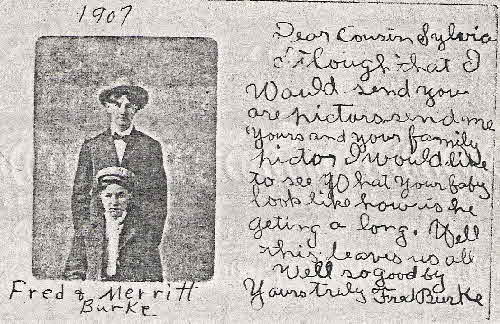 1907
Fred & Merritt
Burke
Dear Cousin Sylvia
I though that I
Would send you
are pictors send me
Yours and your family
pictor I would like
to see What Your baby
look like how is he
geting a long. Well
this leaves us all
Well so good by
Yours truly Fred Burke